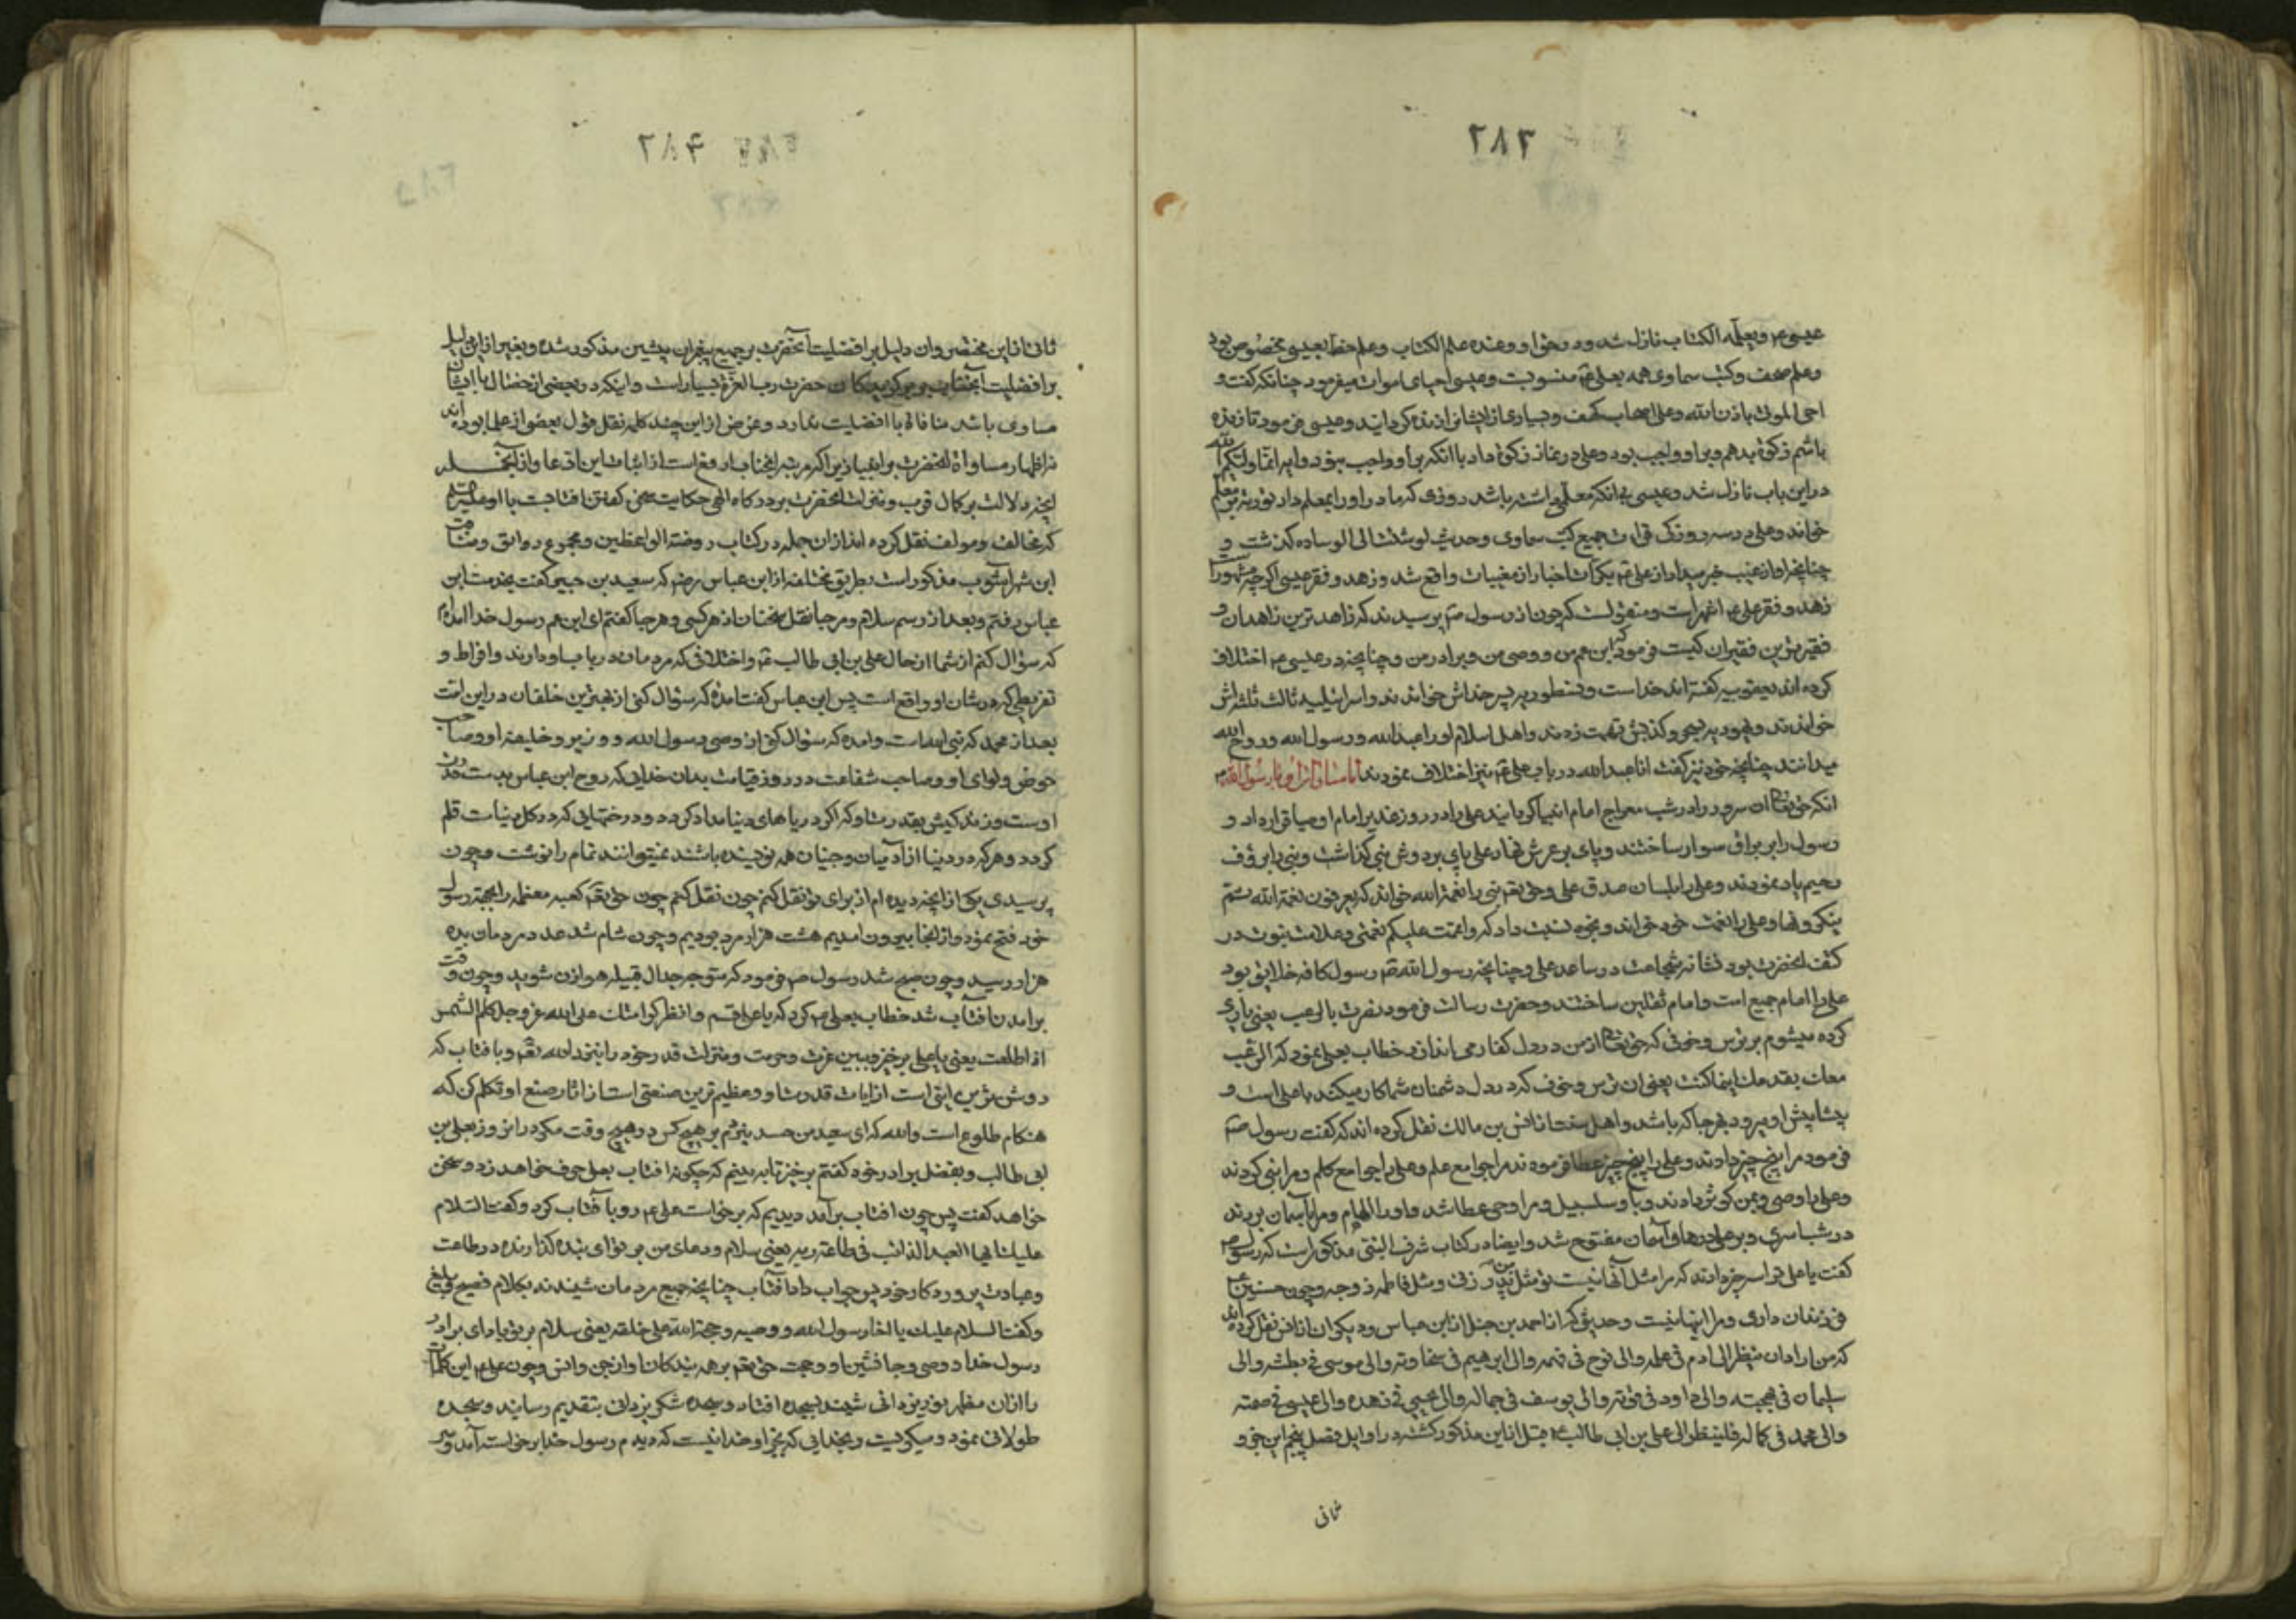 ۲۸۳
عیسی ع و یعلمه الکتاب نازل شد و در حق او و عنده علم الکتاب و علم خط بعیسی مخصوص بود
و علم صحف و کتب سماوی همه بعلی ع منسوبست و عیسی احیای اموات میفرمود چنانکه گفت و
احی الموتی باذن الله و علی اصحاب کهف و بسیاری از ایشانرا زنده گردانید و عیسی فرمود تا زنده
باشم زکوة بدهم و برا و واجب بود و علی در نماز زکوة داد با انکه بر او واجب نبود و ایه انما ولیکم الله
در این باب نازل شد و عیسی بی انکه معلمی داشته باشد روزی که مادر او را بمعلم داد توریة بر معلم
خواند و علی در سه روزکی قرات جمیع کتب سماوی و حدیث لو ثنیت لی الوساده گذشت و
چنانچه او از غیب خبر میداد از علی ع یکرات اخبار از مغیبات واقع شد و زهد و فقر عیسی اگرچه مشهور است
زهد و فقر علی ع اشهر است و منقولست که چون از رسول ص پرسیدند که زاهدترین زاهدان و
فقیرترین فقیران کیست فرمود که ابن عم من و وصی من و برادر من و چنانچه در عیسی ع اختلاف
کرده اند یعقوبیه گفته اند خداست و نسطوریه پسر خداش خواندند و اسرائیلیه ثالث ثلثه اش
خواندند و یهود به سحر و کذبش تهمت زدند و اهل اسلام او را عبد الله و رسول الله و روح الله
میدانند چنانچه خود نیز گفت انا عبد الله در باب علی ع نیز اختلاف نمودند اما مساواة او با رسول الله ص
انکه حق تعالی ان سرور را در شب معراج امام انبیا گردانید علی را در روز غدیر امام اوصیا قرار داد و
رسول را بر براق سوار ساختند و پای بر عرش نهاد علی پای بر دوش نبی گذاشت و نبی را برؤف
رحیم یاد نمودند و علی را بلسان صدق علی و حق تعالی نبی را نعمة الله خواند که یعرفون نعمة الله ثم
ینکرونها و علی را نعمت خود خواند و بخود نسبت داد که و اتممت علیکم نعمتی و علامت نبوت در
کتف انحضرت بود نشانه شجاعت در ساعد علی و چنانچه رسول الله ص رسول کافه خلایق بود
علی را امام جمیع است و امام ثقلین ساختند و حضرت رسالت فرمود نصرت بالرعب یعنی یاری
کرده میشوم بر ترس و خوفی که حق تعالی از من در دل کفار می اندازد خطاب بعلی نمود که الرعب
معک یقدمک اینما کنت یعنی ان ترس و خوف که در دل دشمنان شما کار میکند با علی است و
پیشاپیش او میرود هر جا که باشد و اهل سنت از انس بن مالک نقل کرده اند که گفت رسول ص
فرمود مرا پنج چیز دادند و علی را پنج چیز عطا فرمودند مرا جوامع علم و علی را جوامع کلم و مرا نبی کردند
و علی را وصی و بمن کوثر دادند و باو سلسبیل و مرا وحی عطا شد و او را الهام و مرا بآسمان بردند
در شب اسری و بر علی درهای آسمان مفتوح شد و ایضا در کتاب شرف النبی مذکور است که رسول ص
گفت یا علی ترا سه چیز دادند که مرا مثل آنها نیست تو مثل من پدر زنی و مثل فاطمه زوجه و چون حسنین ع
فرزندان داری و مرا اینها نیست و حدیثی که از احمد بن حنبل از ابن عباس و دیگران از انس نقل کرده اند
که من اراد ان ینظر الی ادم فی علمه و الی نوح فی فهمه و الی ابرهیم فی سخاوته و الی موسی فی بطشه و الی
سلیمان فی بهجته و الی داود فی قوته و الی یوسف فی جماله و الی یحیی فی زهده و الی عیسی فی صمته
و الی محمد فی کماله فلینظر الی علی بن ابی طالب ع قبل از این مذکور گشته در اوایل فصل پنجم این جزو
ثانی
۲۸۴
ثانی از این مختصر و ان دلیل بر افضلیت آنحضرت بر جمیع پیغمبران پیشین مذکور شده و بغیر از این دلیل
بر افضلیت آنجناب بر برگزیدکان حضرت رب العزة بسیار است و اینکه در بعضی از خصال با ایشان
مساوی باشد منافاتی با افضلیت ندارد و غرض از این چند کلمه نقل قول بعضی از علما بوده اند
نه اظهار مساواة انحضرت با انبیا زیرا که مرتبه انجناب ارفع است از اثبات این ادعا و از انجمله
انچه دلالت بر کمال قرب و منزلت انحضرت بر درگاه الهی حکایت سخن گفتن افتابست با او علیه السلم
که مخالف و مولف نقل کرده اند از ان جمله در کتاب روضة الواعظین و مجموع روایق و مناقب
ابن شهراشوب مذکور است بطریق مختلفه از ابن عباس رضه که سعید بن جبیر گفت بخدمت ابن
عباس رفتم و بعد از رسم سلام و مرحبا نقل سخنان از هر کسی و هر جا گفتم ای ابن عم رسول خدا امده ام
که سؤال کنم از شما از حال علی بن ابی طالب ع و اختلافی که مردمان در باب او دارند و افراط و
تفریطی که در شان او واقع است پس ابن عباس گفت امده که سؤال کنی از بهترین خلقان در این امت
بعد از محمد که نبی الله است و امده که سؤال کنی از وصی رسول الله و وزیر و خلیفه او و صاحب
حوض و لوای او و صاحب شفاعت در روز قیامت بدان خدایی که روح ابن عباس بدست قدرت
اوست و زندکیش بقدرت او که اگر دریاهای دنیا مداد گردد و درختهایی که در کل دنیاست قلم
گردد و هر که در دنیا از آدمیان و جنیان همه نویسنده باشند نمیتوانند تمام را نوشت و چون
پرسیدی یکی از انچه دیده ام از برای تو نقل کنم چون نقل کنم چون حق تعالی کعبه معظمه را بجهة رسول
خود فتح نمود و از انجا بیرون امدیم هشت هزار مرد بودیم و چون شام شد عدد مردمان بده
هزار رسید و چون صبح شد رسول ص فرمود که متوجه جدال قبیله هوازن شوید و چون وقت
برامدن افتاب شد خطاب بعلی ع کرد که یا علی قم و انظر کرامتک علی الله عز و جل کلم الشمس
اذا طلعت یعنی یا علی برخیز و ببین عزت و حرمت و منزلت قدر خود را بنزد الله تعالی و با فتاب که
روشن ترین ایتی است از ایات قدرت او و عظیم ترین صنعتی است از اثار صنع او تکلم کن که
هنکام طلوع است والله که ای سعید من حسد نبردم بر هیچ کس در هیچ وقت مگر در انروز بعلی بن
ابی طالب و بفضل برادر خود گفتم برخیز تا ببینیم که چگونه افتاب بعلی حرف خواهد زد و سخن
خواهد گفت پس چون افتاب برآمد دیدیم که برخواست علی ع رو با فتاب کرد و گفت السلام
علیک ایها العبد الذائب فی طاعة ربه یعنی سلام و دعای من بر تو ای بنده گذارنده در طاعت
و عبادت پروردکار خود پس جواب داد افتاب چنانچه جمیع مردمان شنیدند بکلام فصیح بلیغ
و گفت السلام علیک یا اخا رسول الله و وصیه و حجة الله علی خلقه یعنی سلام بر تو باد ای برادر
رسول خدا و وصی و جانشین او و حجت حق تعالی بر همه بندکان او از جن و انس و چون علی ع این کلمات
را از ان مظهر نور یزدانی شنید بسجده افتاد و سجده شکر یزدانی بتقدیم رسانید و سجده
طولانی نمود و میگریست و بخدایی که بجز او خدا نیست که دیدم رسول خدا برخواست آمد و سر